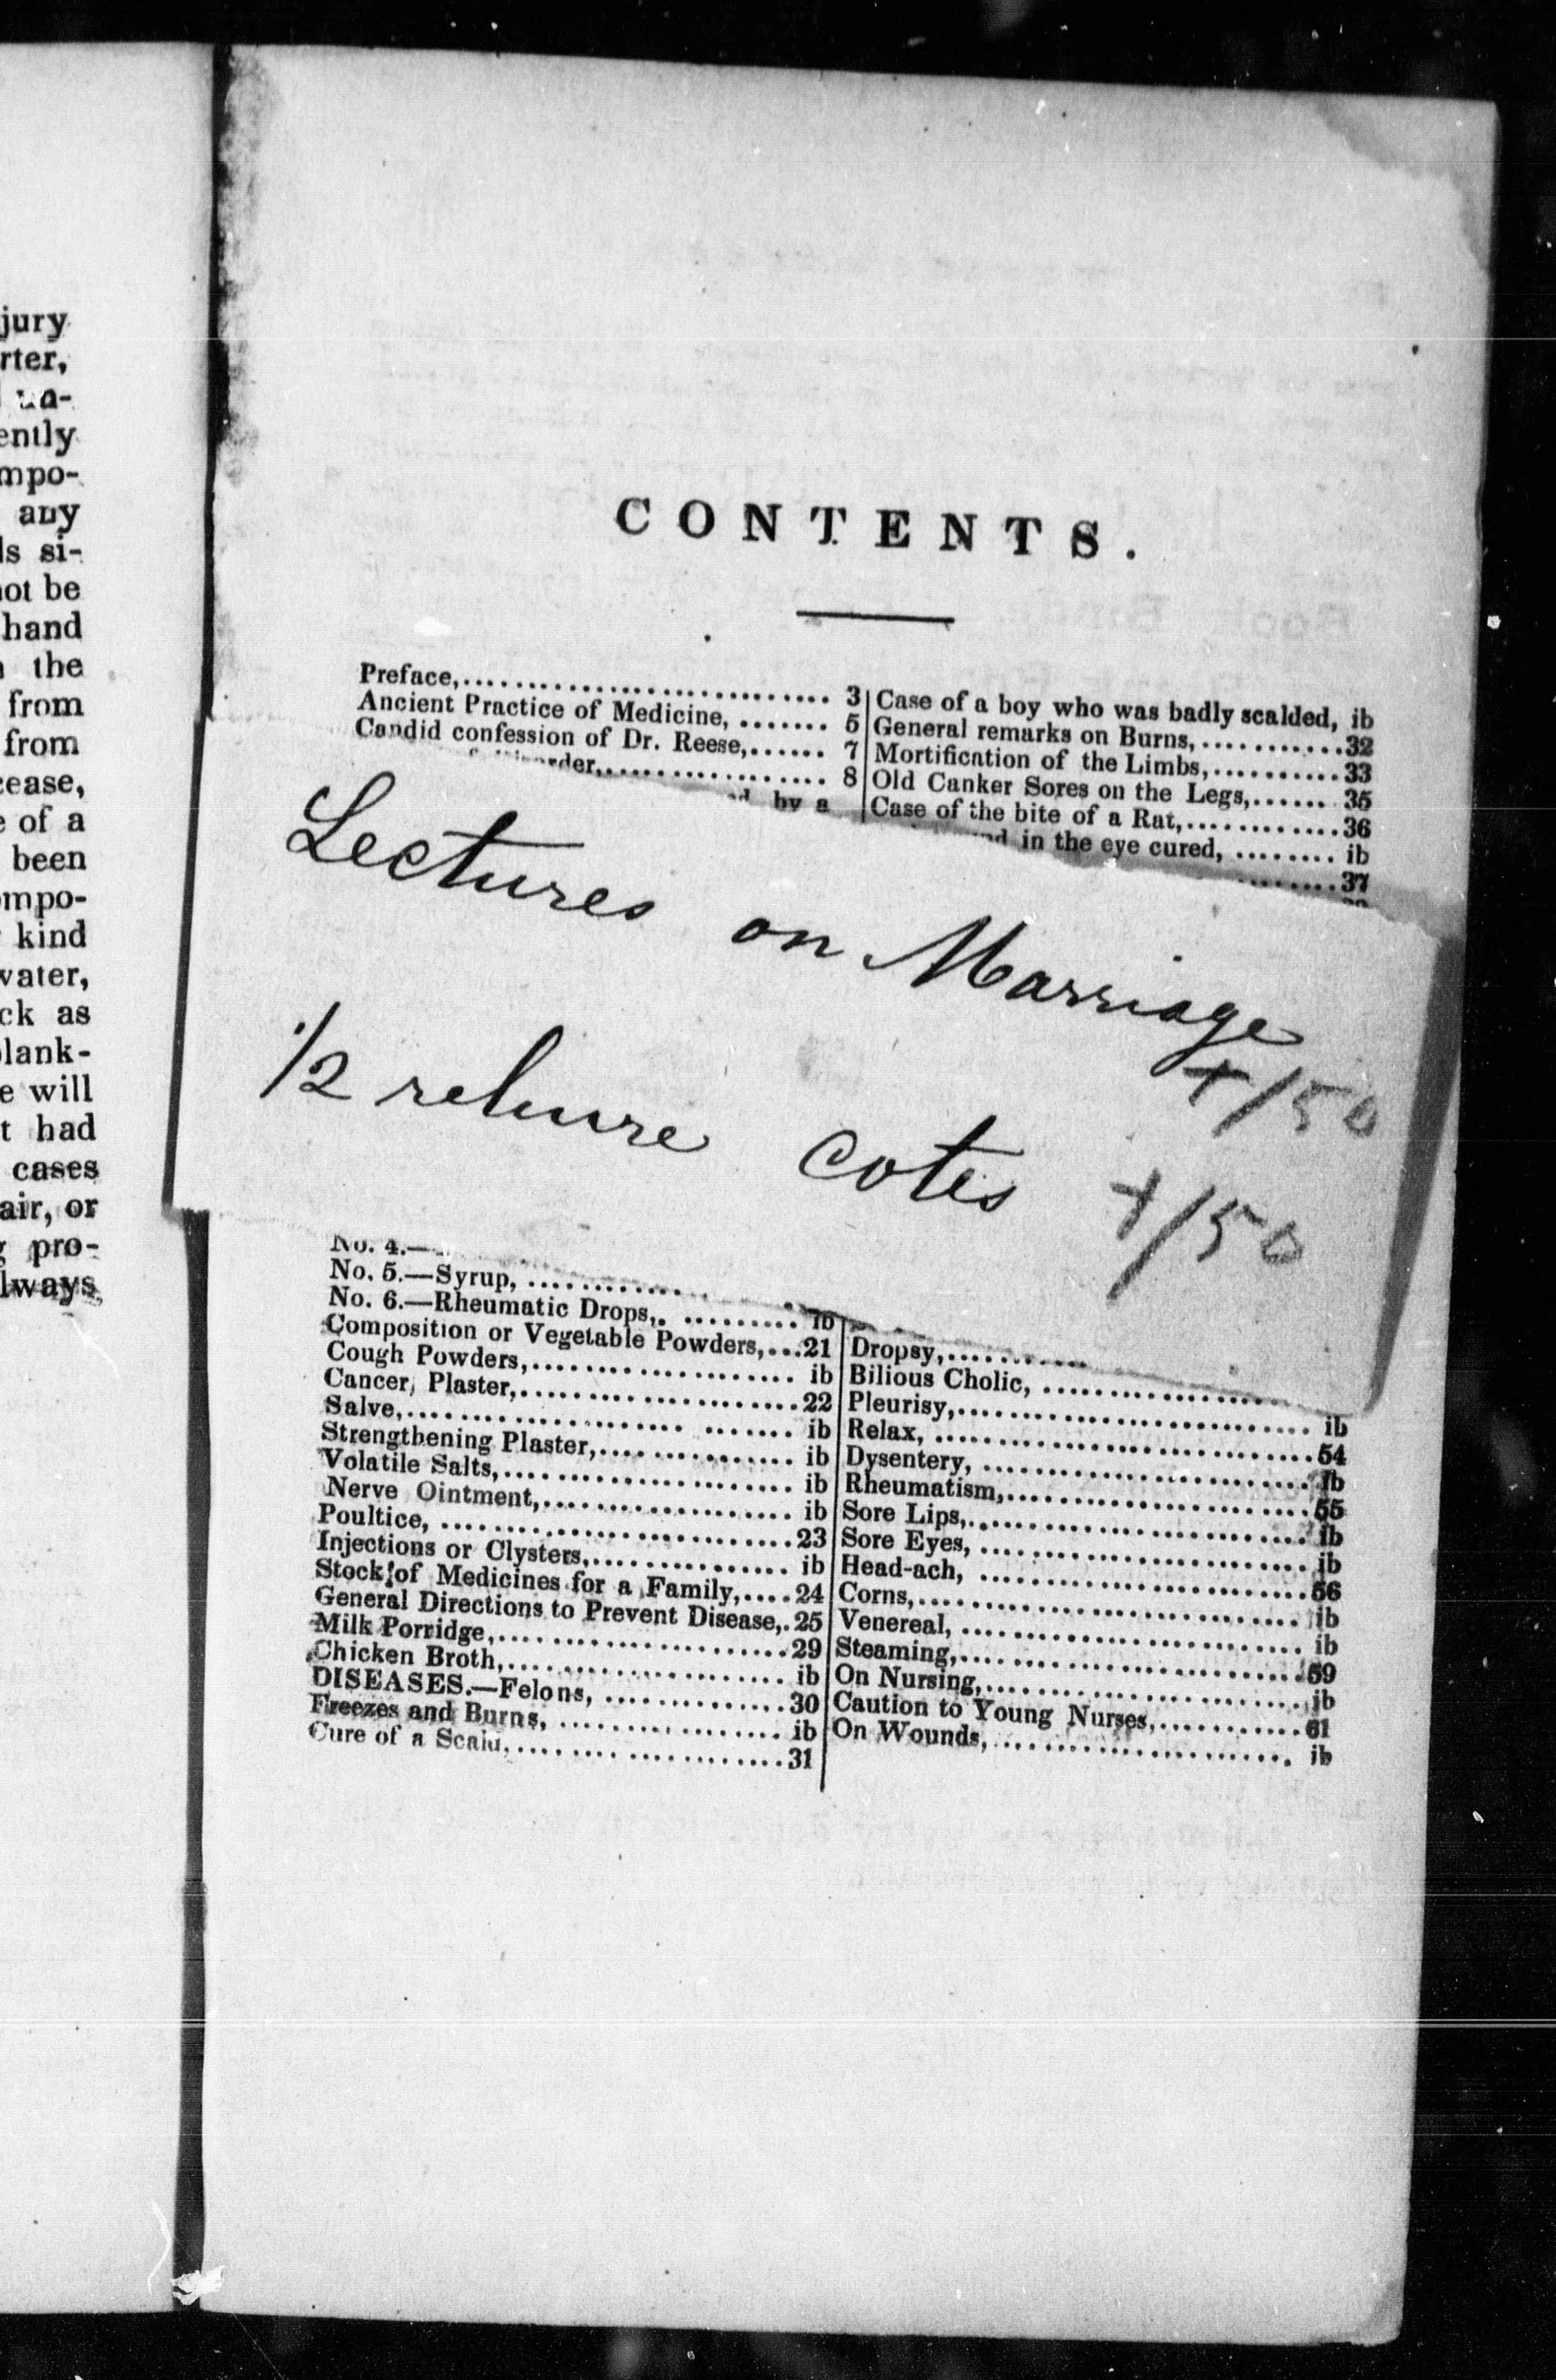 jury
rter,
ently
mpo-
any
ls si-
not be
hand
the
from
from
cease,
e of a
been
ompo-
kind
water,
ck as
blank-
e will
t had
cases
air, or
g pro-
lways
CONTENTS.
Preface,.............................. 3
Ancient Practice of Medicine, ....... 5
Candid confession of Dr. Reese,...... 7
rder,................. 8
by a
Case of a boy who was badly scalded, ib
General remarks on Burns,...........32
Mortification of the Limbs,..........33
Old Canker Sores on the Legs,...... 35
Case of the bite of a Rat,............36
in the eye cured, ........ ib
........37
Lectures on Marriage
+/50
1/2 reliure cotes +/50
No. 4.—
No. 5.—Syrup, ..............
No. 6.—Rheumatic Drops,. ......... ib
Composition or Vegetable Powders,...21
Cough Powders,..................... ib
Cancer Plaster,......................22
Salve,............................ ib
Strengthening Plaster,............... ib
Volatile Salts,....................... ib
Nerve Ointment,.................... ib
Poultice, ............................23
Injections or Clysters,............... ib
Stock of Medicines for a Family,....24
General Directions to Prevent Disease,.25
Milk Porridge,.......................29
Chicken Broth,...................... ib
DISEASES.—Felons, ..............30
Freezes and Burns, .................. ib
Cure of a Scald,.....................31
Dropsy,............
Bilious Cholic, ...................
Pleurisy,............................ ib
Relax, ..............................54
Dysentery, ..........................ib
Rheumatism,........................55
Sore Lips,...........................ib
Sore Eyes, .......................... ib
Head-ach, ..........................56
Corns,.............................. ib
Venereal, ........................... ib
Steaming,...........................59
On Nursing,.........................ib
Caution to Young Nurses,............61
On Wounds,........................ ib